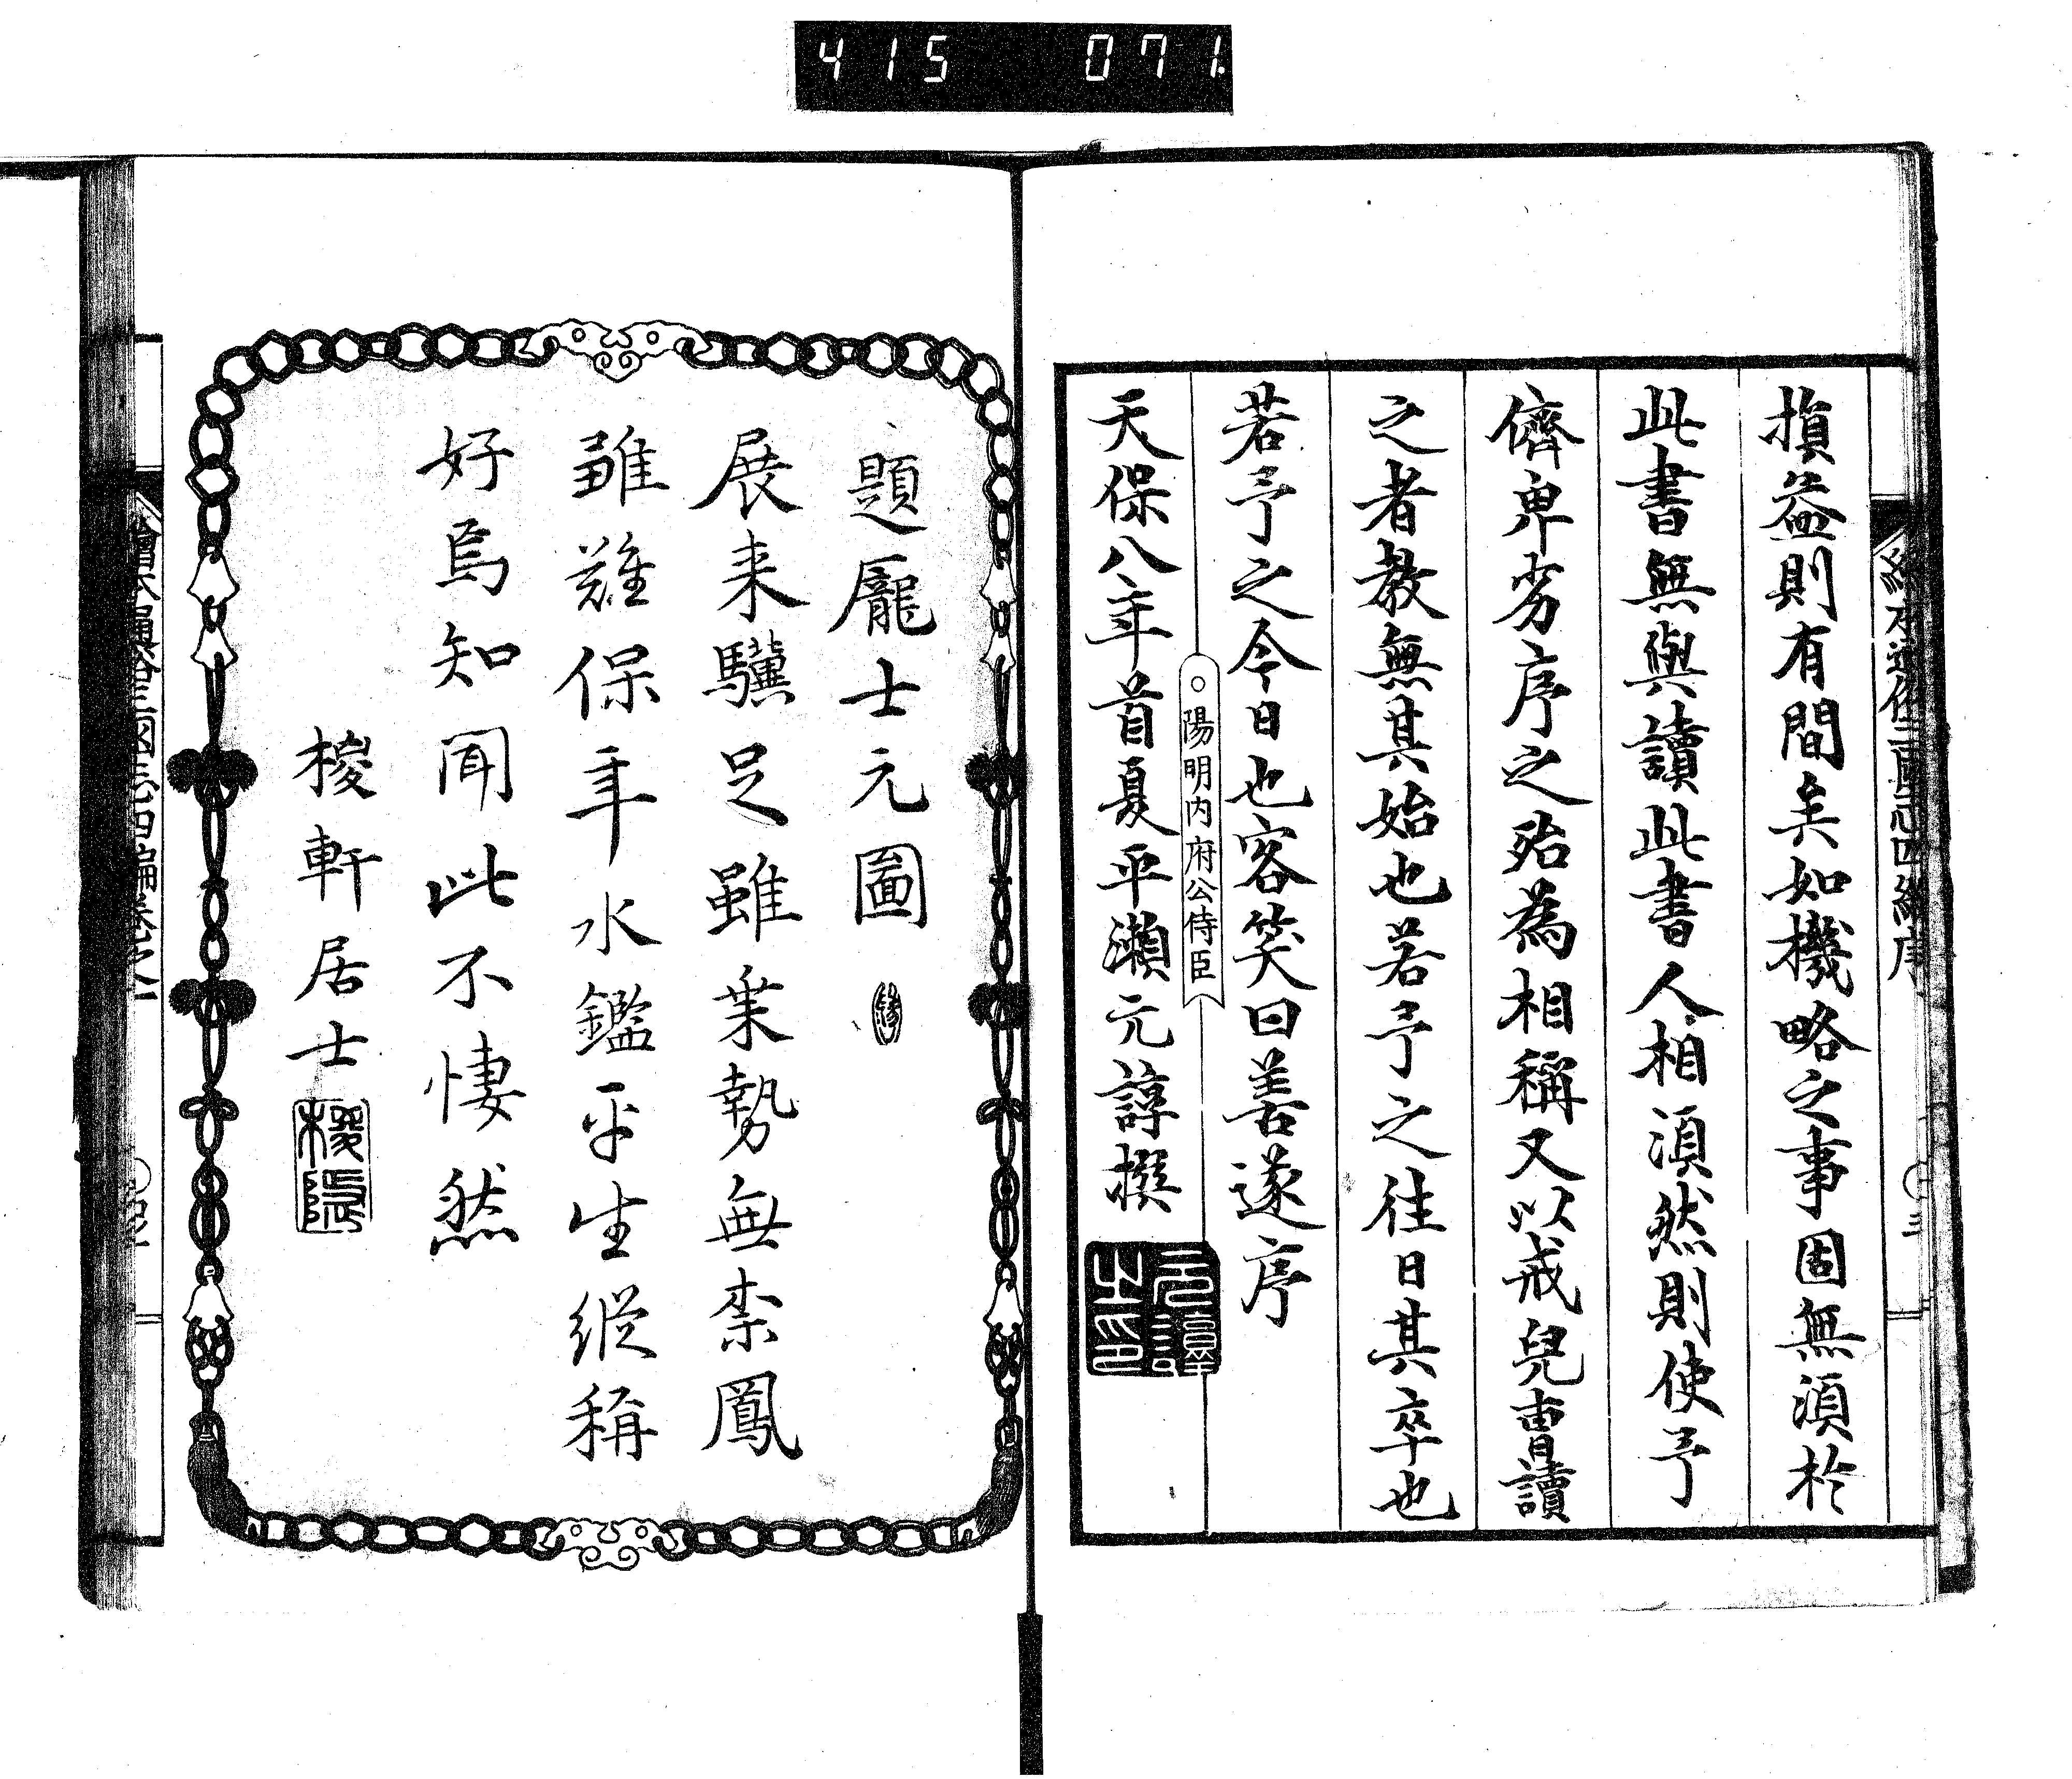 415 071
繪本通俗三國志四編序 三
損益則有間矣如機略之事固無須於
此書無與讀此書人相須然則使予
儕卑劣序之殆為相稱又以戒兒曹讀
之者教無其始也若予之往日其卒也
若予之今日也客笑曰善遂序
○陽明内府公侍臣
天保八年首夏平瀬元諄撰
元諄之印
題龐士元圖
展来驥足雖乗勢無柰鳳
雛難保年水鑑平生縦稱
好焉知聞此不悽然
梭軒居士
繪本通俗三國志四編卷之一